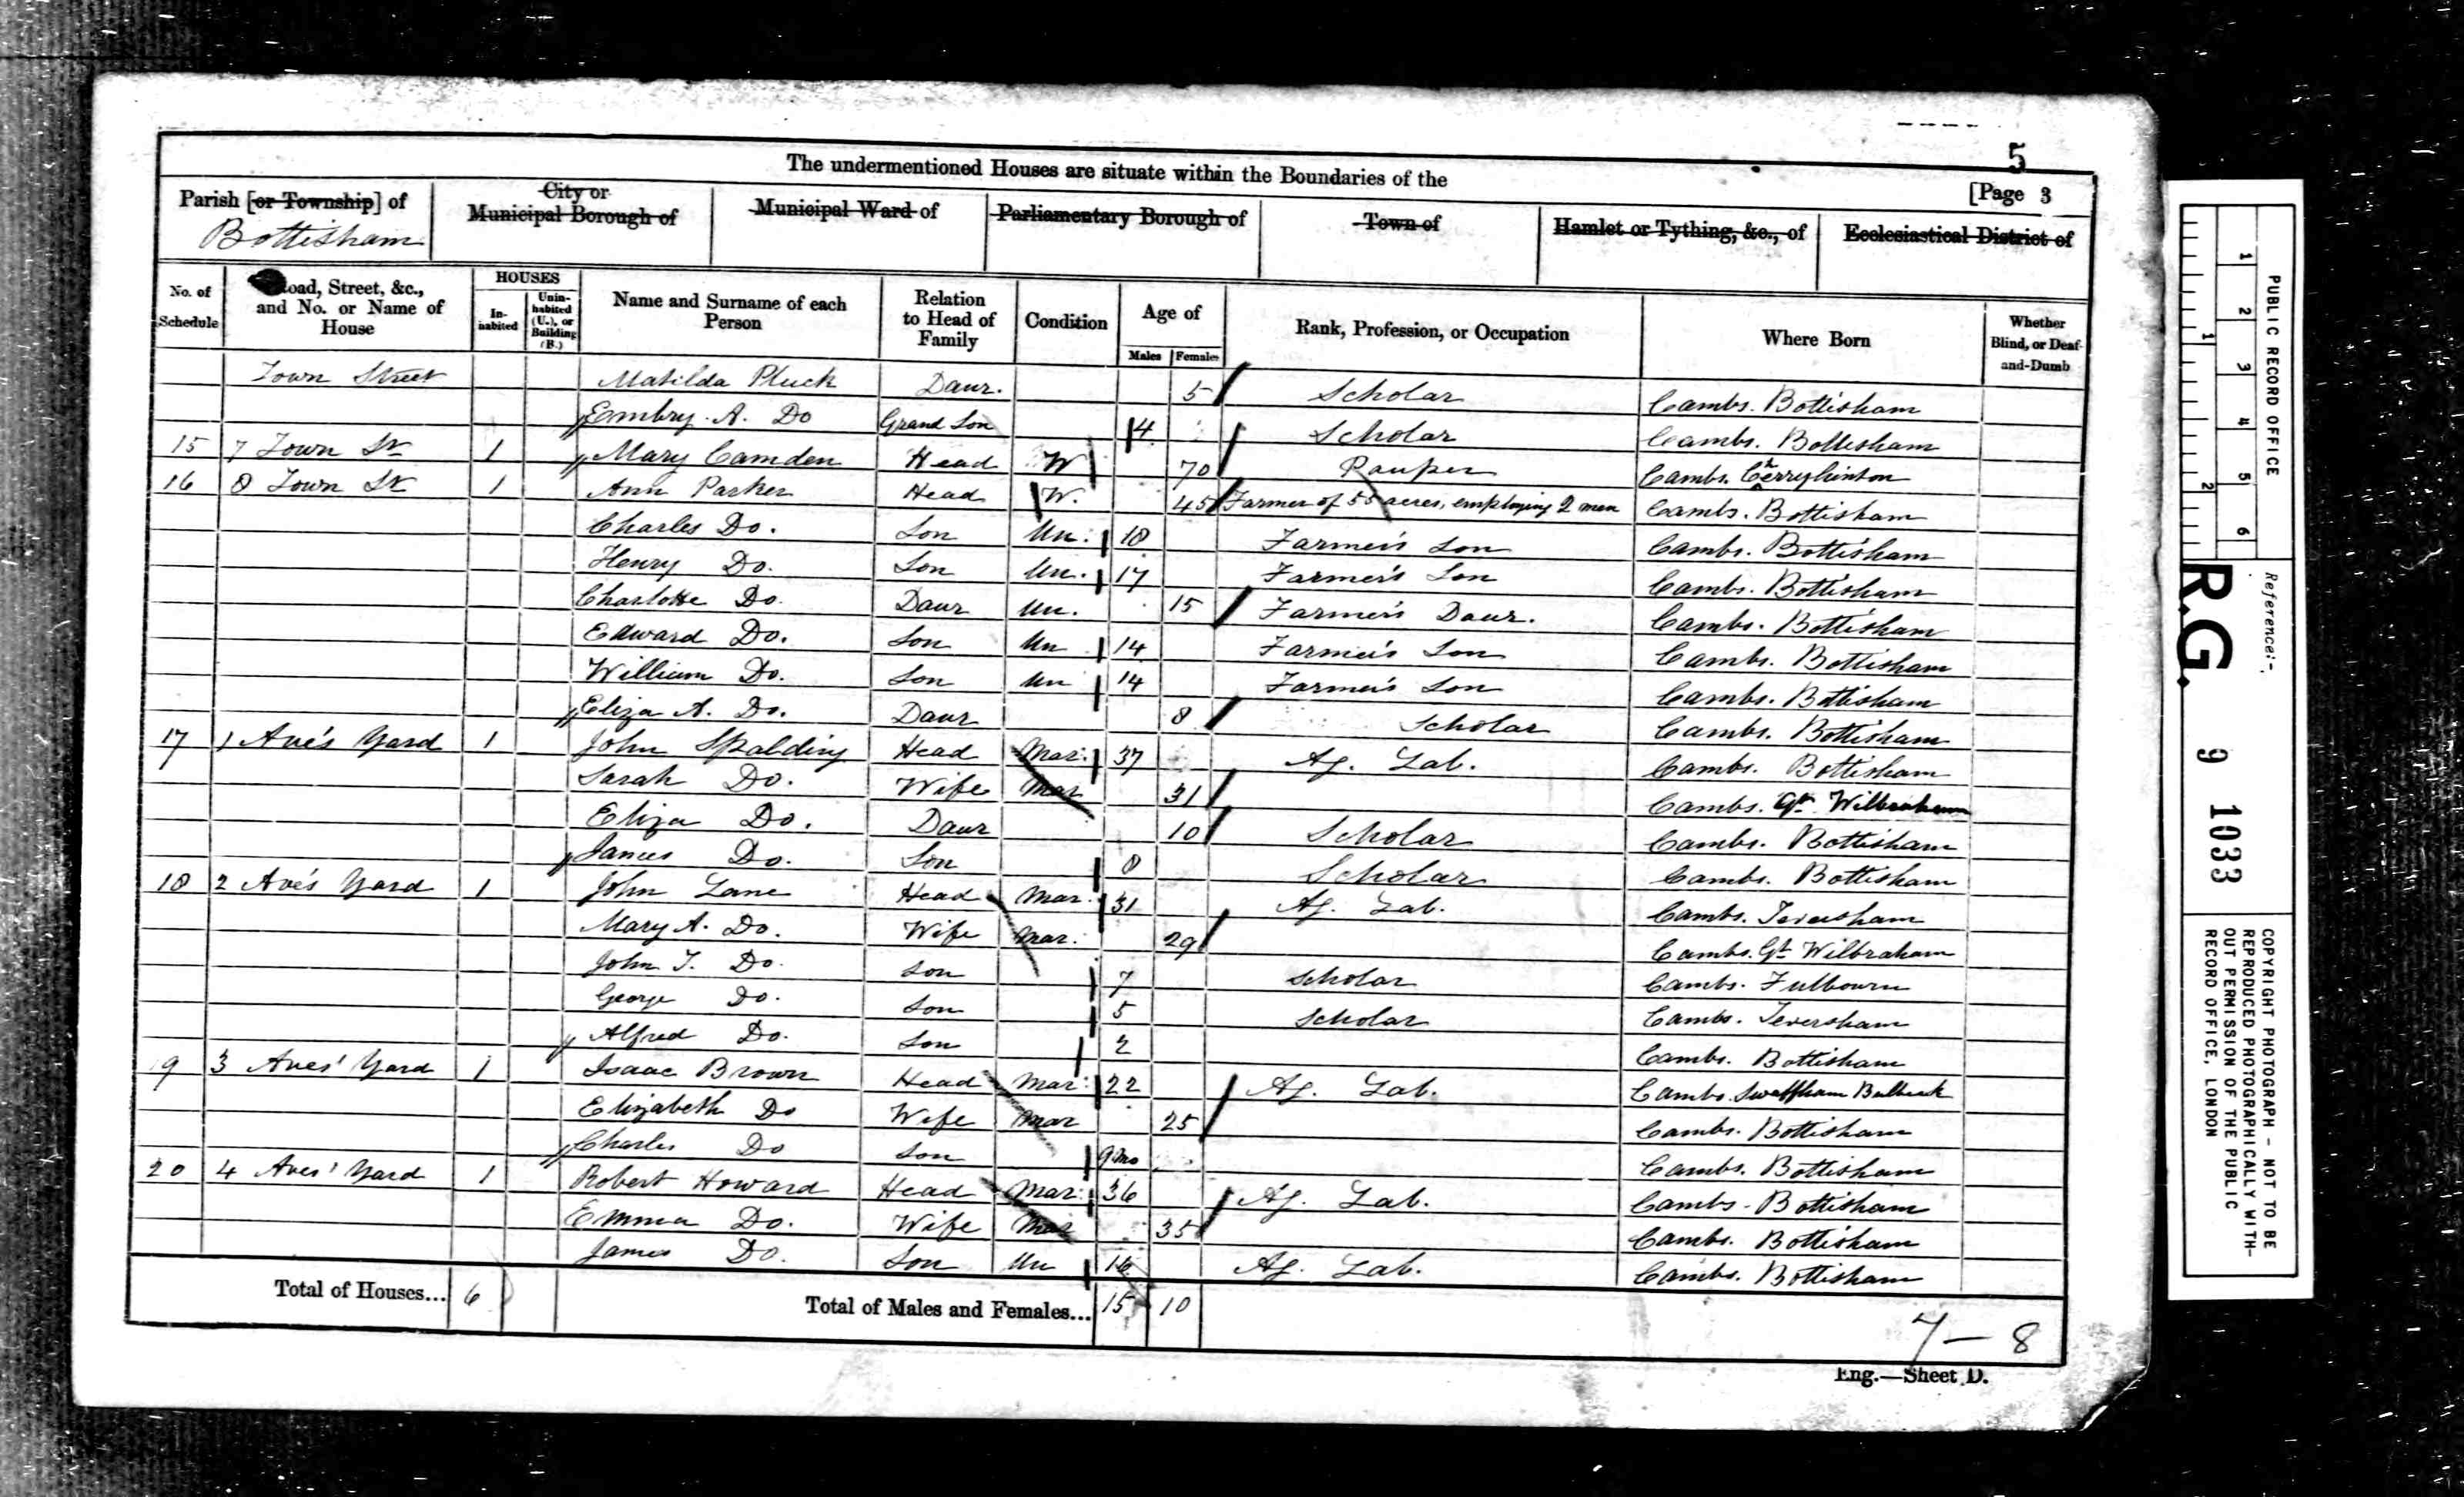 5
The undermentioned Houses are situate within the Boundaries of the
[Page 3
Parish [or Township] of Bottisham
City or Municipal Borough of
Municipal Ward of
Parliamentary Borough of
Town of
Hamlet or Tything, &c., of
Ecclesiastical District of
No. of Schedule
Road, Street, &c., and No. or Name of House
HOUSES
In-habited
Unin-habited (U.), or Building (B.)
Name and Surname of each Person
Relation to Head of Family
Condition
Age of
Males
Females
Rank, Profession, or Occupation
Where Born
Whether Blind, or Deaf-and-Dumb
Town Street Matilda Pluck Daur. 5 Scholar Cambs. Bottisham
Embry. A. Do Grand Son 4 Scholar Cambs. Bottisham
15 7 Town St 1 Mary Camden Head W 70 Pauper Cambs. Cherryhinton
16 8 Town St 1 Ann Parker Head W. 45 Farmer of 55 acres, employing 2 men Cambs. Bottisham
Charles Do. Son Un. 18 Farmer's Son Cambs. Bottisham
Henry Do. Son Un. 17 Farmer's Son Cambs. Bottisham
Charlotte Do. Daur Un. 15 Farmer's Daur. Cambs. Bottisham
Edward Do. Son Un 14 Farmer's Son Cambs. Bottisham
William Do. Son Un 14 Farmer's Son Cambs. Bottisham
Eliza A. Do. Daur 8 Scholar Cambs. Bottisham
17 1 Ave's Yard 1 John Spalding Head Mar. 37 Ag. Lab. Cambs. Bottisham
Sarah Do. Wife Mar 31 Cambs. Gt. Wilbraham
Eliza Do. Daur 10 Scholar Cambs. Bottisham
James Do. Son 8 Scholar Cambs. Bottisham
18 2 Ave's Yard 1 John Lane Head Mar. 31 Ag. Lab. Cambs. Teversham
Mary A. Do. Wife Mar. 29 Cambs. Gt Wilbraham
John T. Do. Son 7 Scholar Cambs. Fulbourn
George Do. Son 5 Scholar Cambs. Teversham
Alfred Do. Son 2 Cambs. Bottisham
19 3 Aves' Yard 1 Isaac Brown Head Mar. 22 Ag. Lab. Cambs. Swaffham Bulbeck
Elizabeth Do Wife Mar 25 Cambs. Bottisham
Charles Do Son 9 mo Cambs. Bottisham
20 4 Aves' Yard 1 Robert Howard Head Mar. 36 Ag. Lab. Cambs. Bottisham
Emma Do. Wife Mar 35 Cambs. Bottisham
James Do. Son Un 16 Ag. Lab. Cambs. Bottisham
Total of Houses... 6 Total of Males and Females... 15 10
7—8
Eng.—Sheet D.
1 2 3 4 5 6
1 2
PUBLIC RECORD OFFICE
Reference:-
R.G. 9 1033
COPYRIGHT PHOTOGRAPH - NOT TO BE
REPRODUCED PHOTOGRAPHICALLY WITH-
OUT PERMISSION OF THE PUBLIC
RECORD OFFICE, LONDON